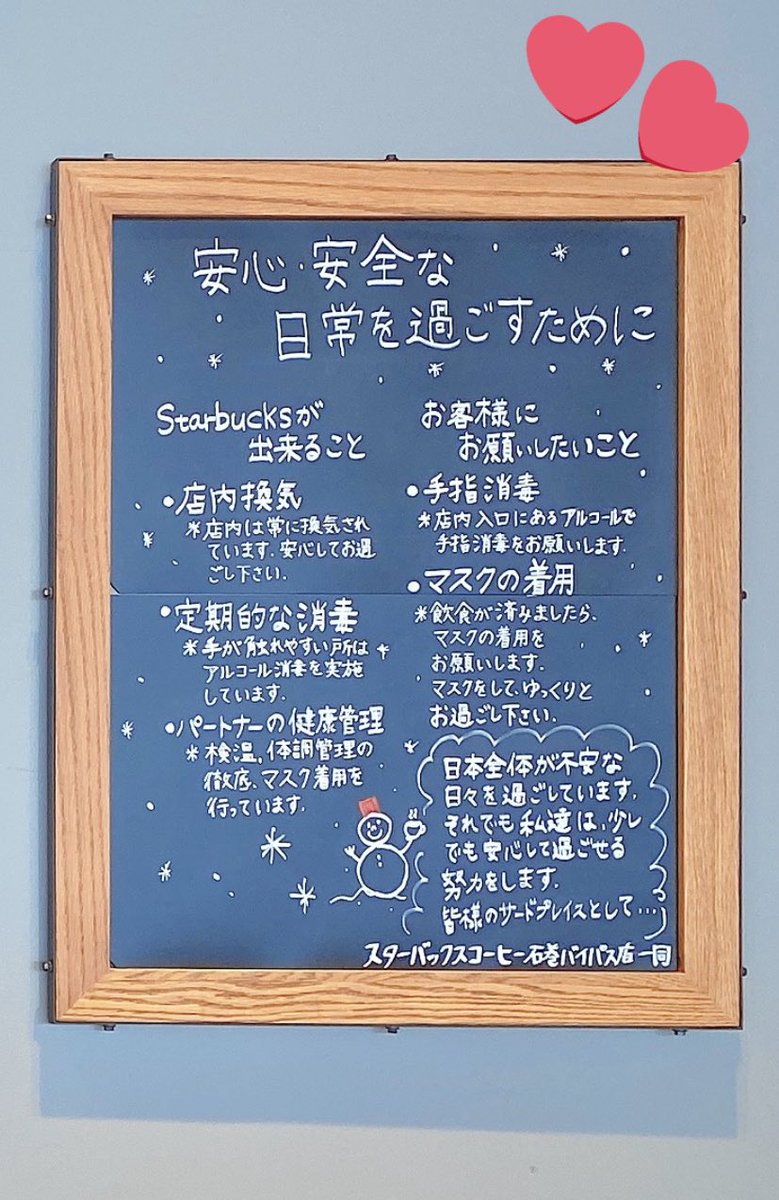 安心・安全な
日常を過ごすために
Starbucksが
出来ること
・店内換気
※店内は常に換気され
ています。安心してお過
ごし下さい。
・定期的な消毒
※手が触れやすい所は
アルコール消毒を実施
しています。
・パートナーの健康管理
※検温、体調管理の
徹底、マスク着用を
行っています。
お客様に
お願いしたいこと
・手指消毒
※店内入口にあるアルコールで
手指消毒をお願いします。
・マスクの着用
※飲食が済みましたら、
マスクの着用を
お願いします。
マスクをして、ゆっくりと
お過ごし下さい。
日本全体が不安な
日々を過ごしています。
それでも私達は、少し
でも安心して過ごせる
努力をします。
皆様のサードプレイスとして…
スターバックスコーヒー石巻バイパス店一同